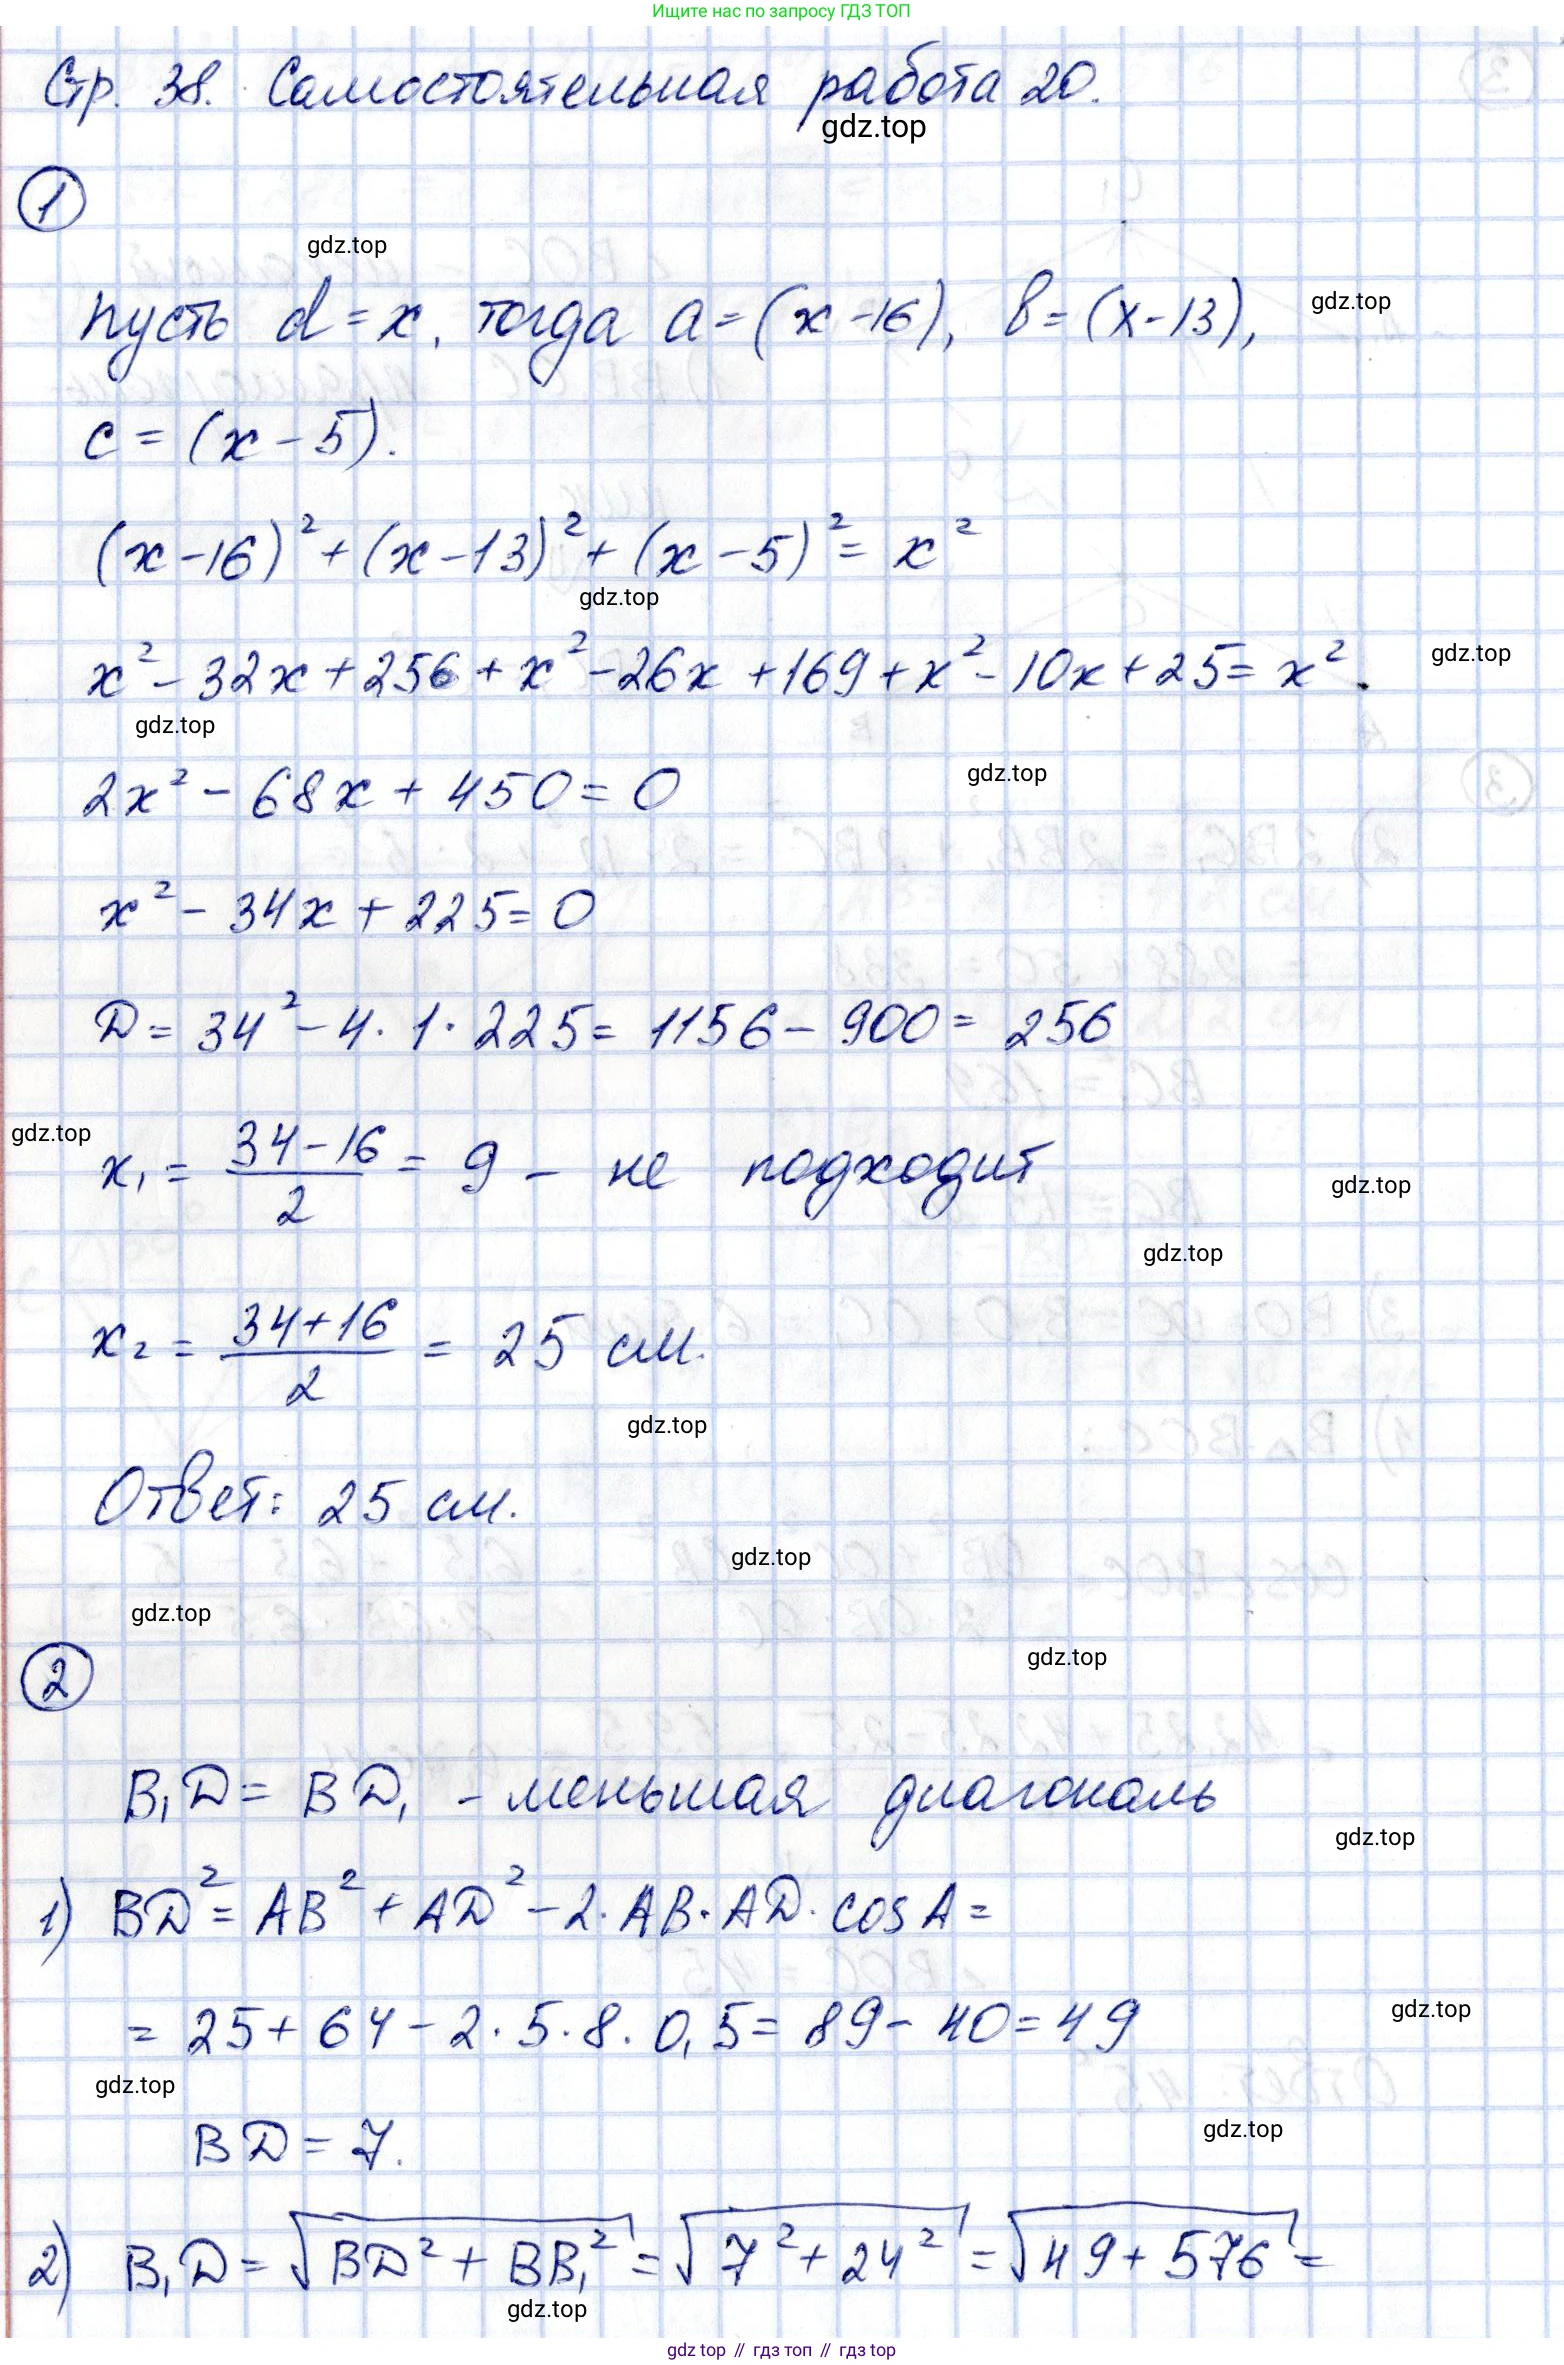 Ищите нас по запросу ГДЗ ТОП
Стр. 38. Самостоятельная работа 20.
gdz.top
1
gdz.top
пусть d = x, тогда a = (x - 16), b = (x - 13),
gdz.top
c = (x - 5).
(x - 16)² + (x - 13)² + (x - 5)² = x²
gdz.top
x² - 32x + 256 + x² - 26x + 169 + x² - 10x + 25 = x².
gdz.top
gdz.top
2x² - 68x + 450 = 0
gdz.top
x² - 34x + 225 = 0
D = 34² - 4 · 1 · 225 = 1156 - 900 = 256
gdz.top
x₁ = (34 - 16)/2 = 9 - не подходит
gdz.top
gdz.top
x₂ = (34 + 16)/2 = 25 см.
gdz.top
Ответ: 25 см.
gdz.top
gdz.top
2
gdz.top
B₁D = BD₁ - меньшая диагональ
gdz.top
1) BD² = AB² + AD² - 2 · AB · AD · cos A =
= 25 + 64 - 2 · 5 · 8 · 0,5 = 89 - 40 = 49
gdz.top
gdz.top
BD = 7.
gdz.top
2) B₁D = √(BD² + BB₁²) = √(7² + 24²) = √(49 + 576) =
gdz.top
gdz top // гдз топ // gdz top